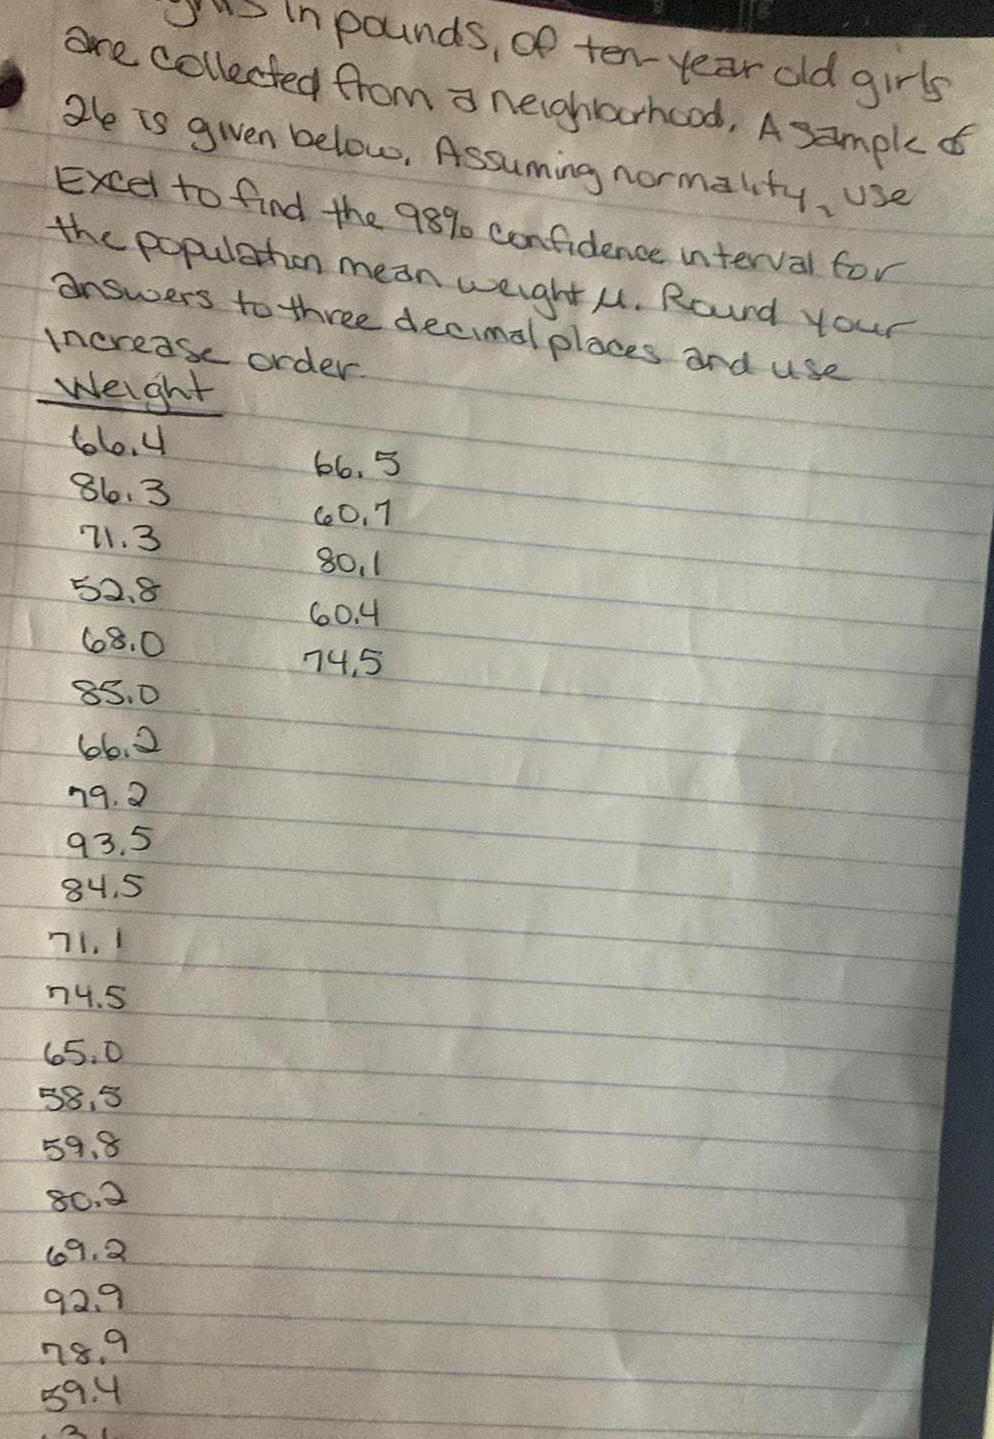 in pounds, of ten-year old girls
are collected from a neighborhood. A sample of
26 is given below. Assuming normality, use
Excel to find the 98% confidence interval for
the population mean weight μ. Round your
answers to three decimal places and use
increase order.
Weight
66.4
86.3
71.3
52.8
68.0
85.0
66.2
79.2
93.5
84.5
71.1
74.5
65.0
58.5
59.8
80.2
69.2
92.9
78.9
59.4
66.5
60.7
80.1
60.4
74.5